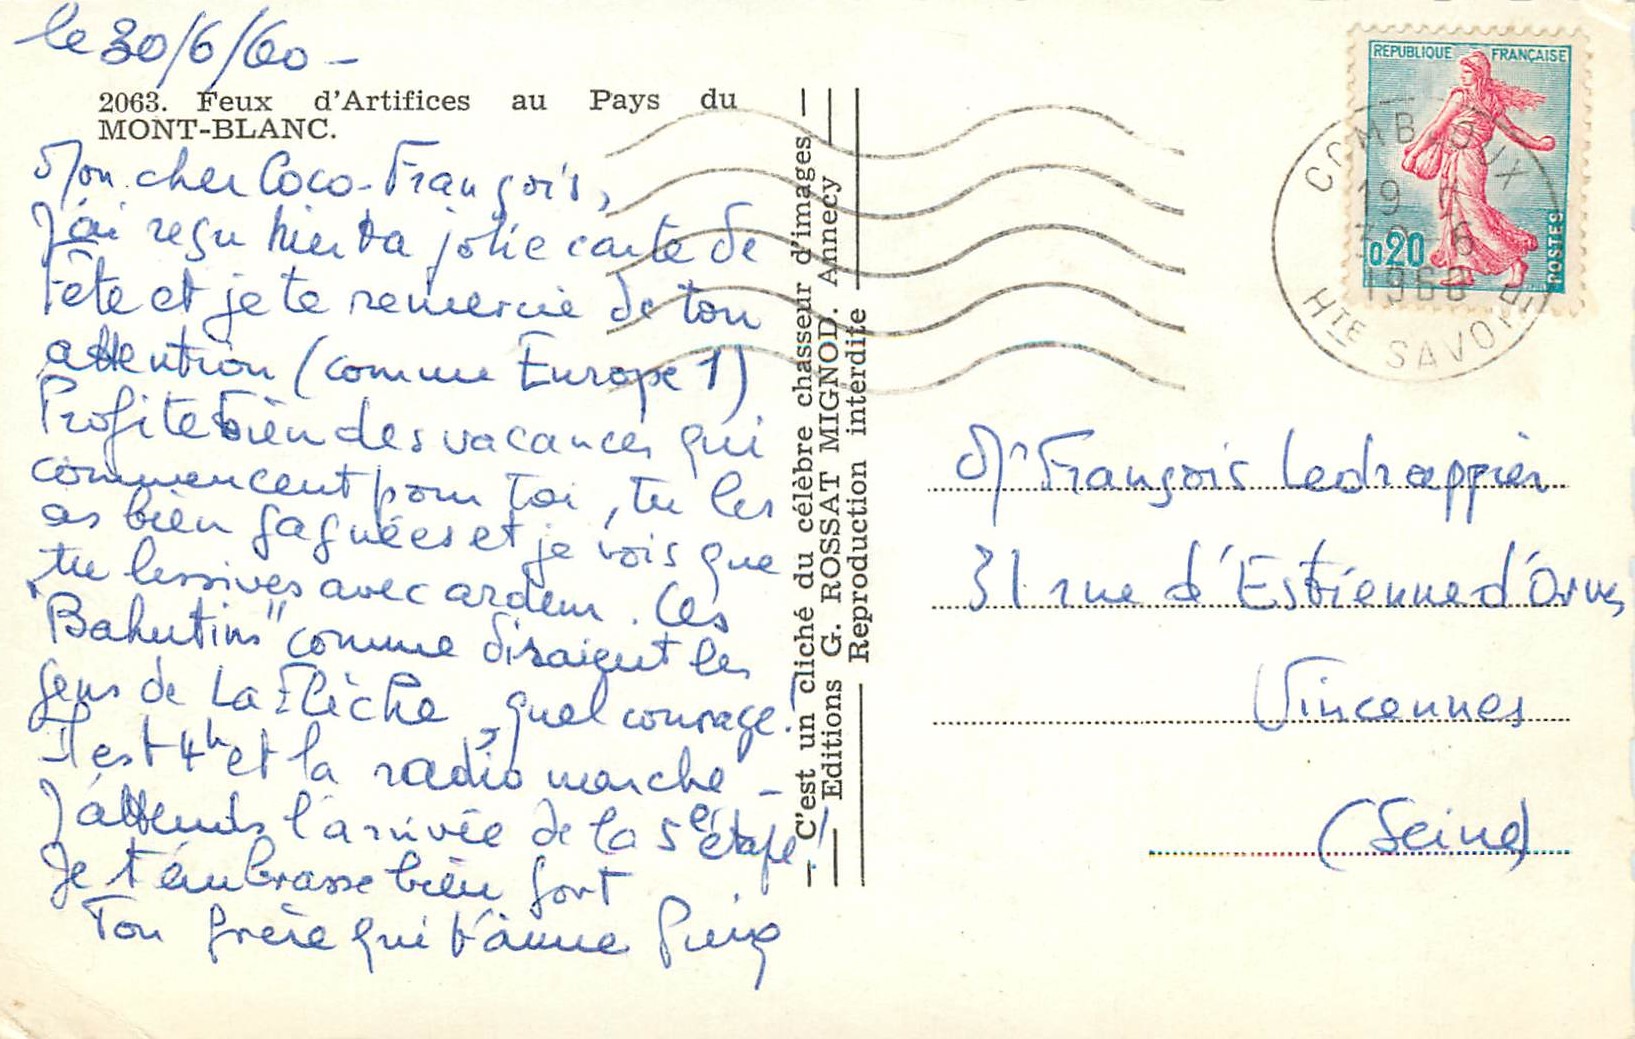 le 30/6/60 -
2063. Feux d'Artifices au Pays du
MONT-BLANC.
Mon cher Coco-François,
J'ai reçu hier ta jolie carte de
Fête et je te remercie de ton
attention (comme Europe 1)
Profite bien des vacances qui
commencent pour toi, tu les
as bien gagnées et je vois que
tu lessives avec ardeur. Ces
"Bahutins" comme disaient les
gens de La Flèche, quel courage !
Il est 4h et la radio marche -
J'attends l'arrivée de la 5e étape !
Je t'embrasse bien fort
Ton frère qui t'aime
C'est un cliché du célèbre chasseur d'images
Editions G. ROSSAT MIGNOD. Annecy
Reproduction interdite
REPUBLIQUE FRANÇAISE
0,20
POSTES
COMBLOUX
19 H
30-6
1960
HTE SAVOIE
Mr François Ledrappier
31 rue d'Estienne d'Orves
Vincennes
(Seine)